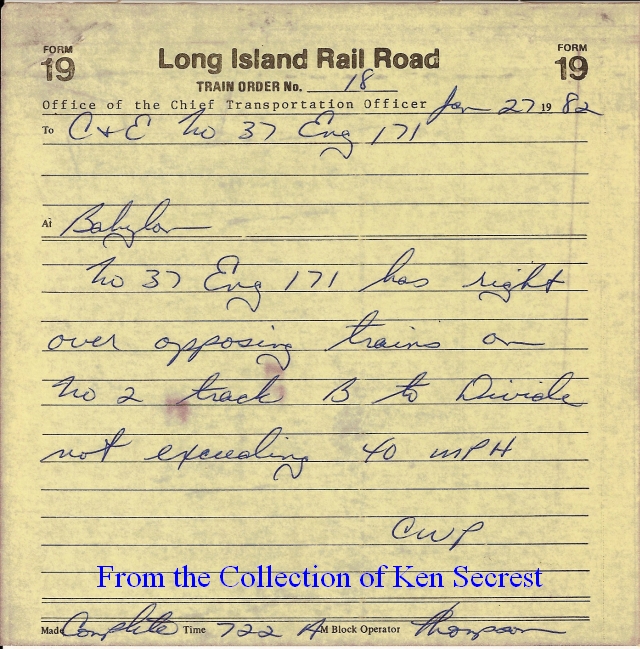 FORM 19 Long Island Rail Road FORM 19
TRAIN ORDER No. 18
Office of the Chief Transportation Officer Jan 27 1982
To C+E No 37 Eng 171
At Babylon
No 37 Eng 171 has right
over opposing trains on
No 2 track B to Divide
not exceeding 40 MPH
CWP
From the Collection of Ken Secrest
Made Complete Time 722 AM Block Operator Thompson